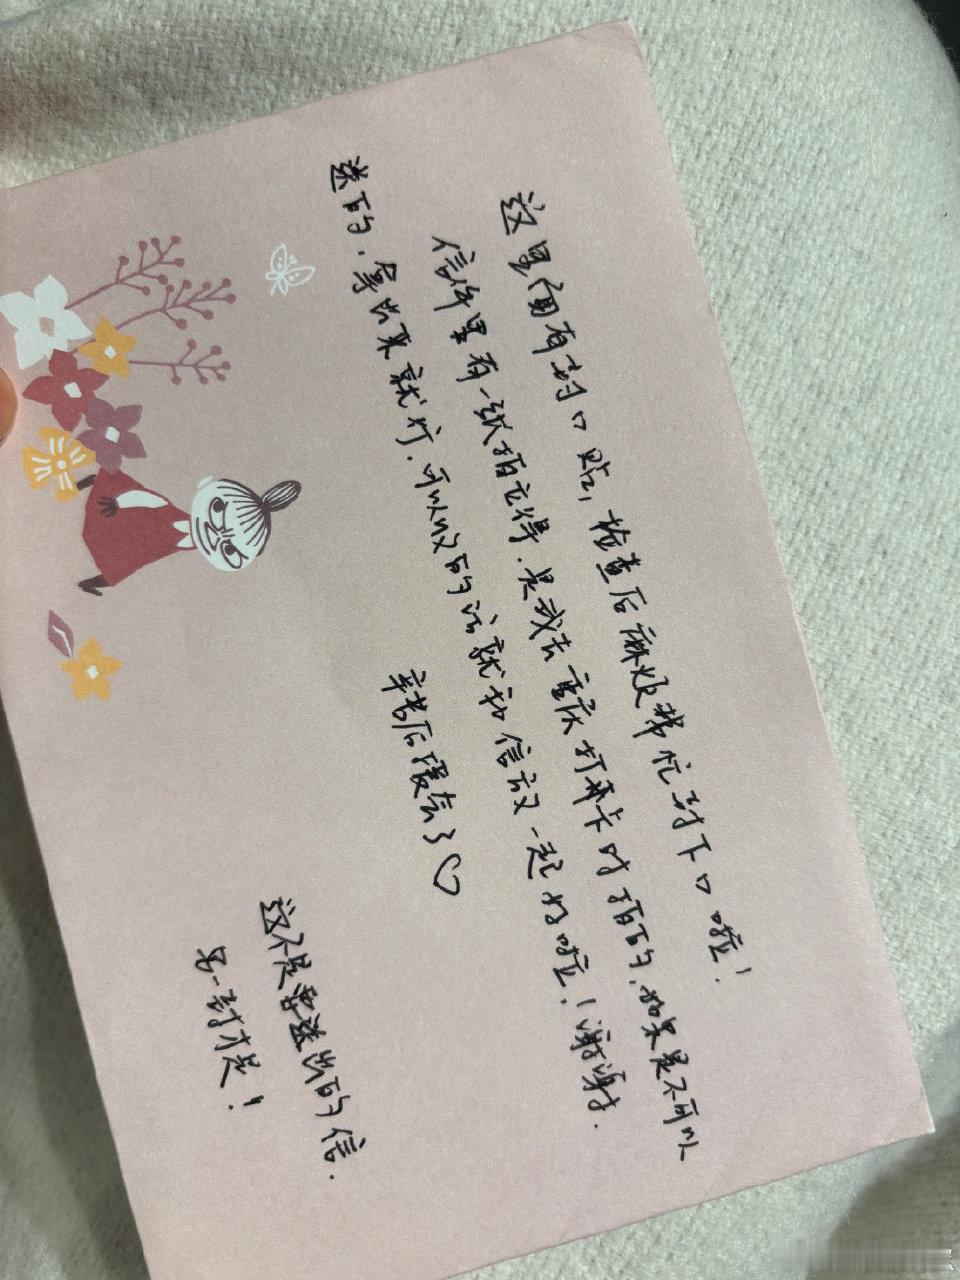 这里面有封口贴，检查后麻烦帮忙封下口啦！
信件里有一张拍立得．是我去重庆打开卡时拍的．如果是不可以
送的．拿出来就行．可以收的话就和信放一起好啦！谢谢．
辛苦后援会了♡
这不是要送出的信．
另一封才是！